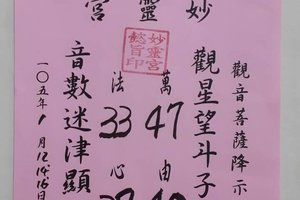 妙靈宮
觀音菩薩降示
觀星望斗子
萬 47 由
妙靈宮
懿旨印
法 33 心
音數迷津顯
一〇五年1月12.14.16日